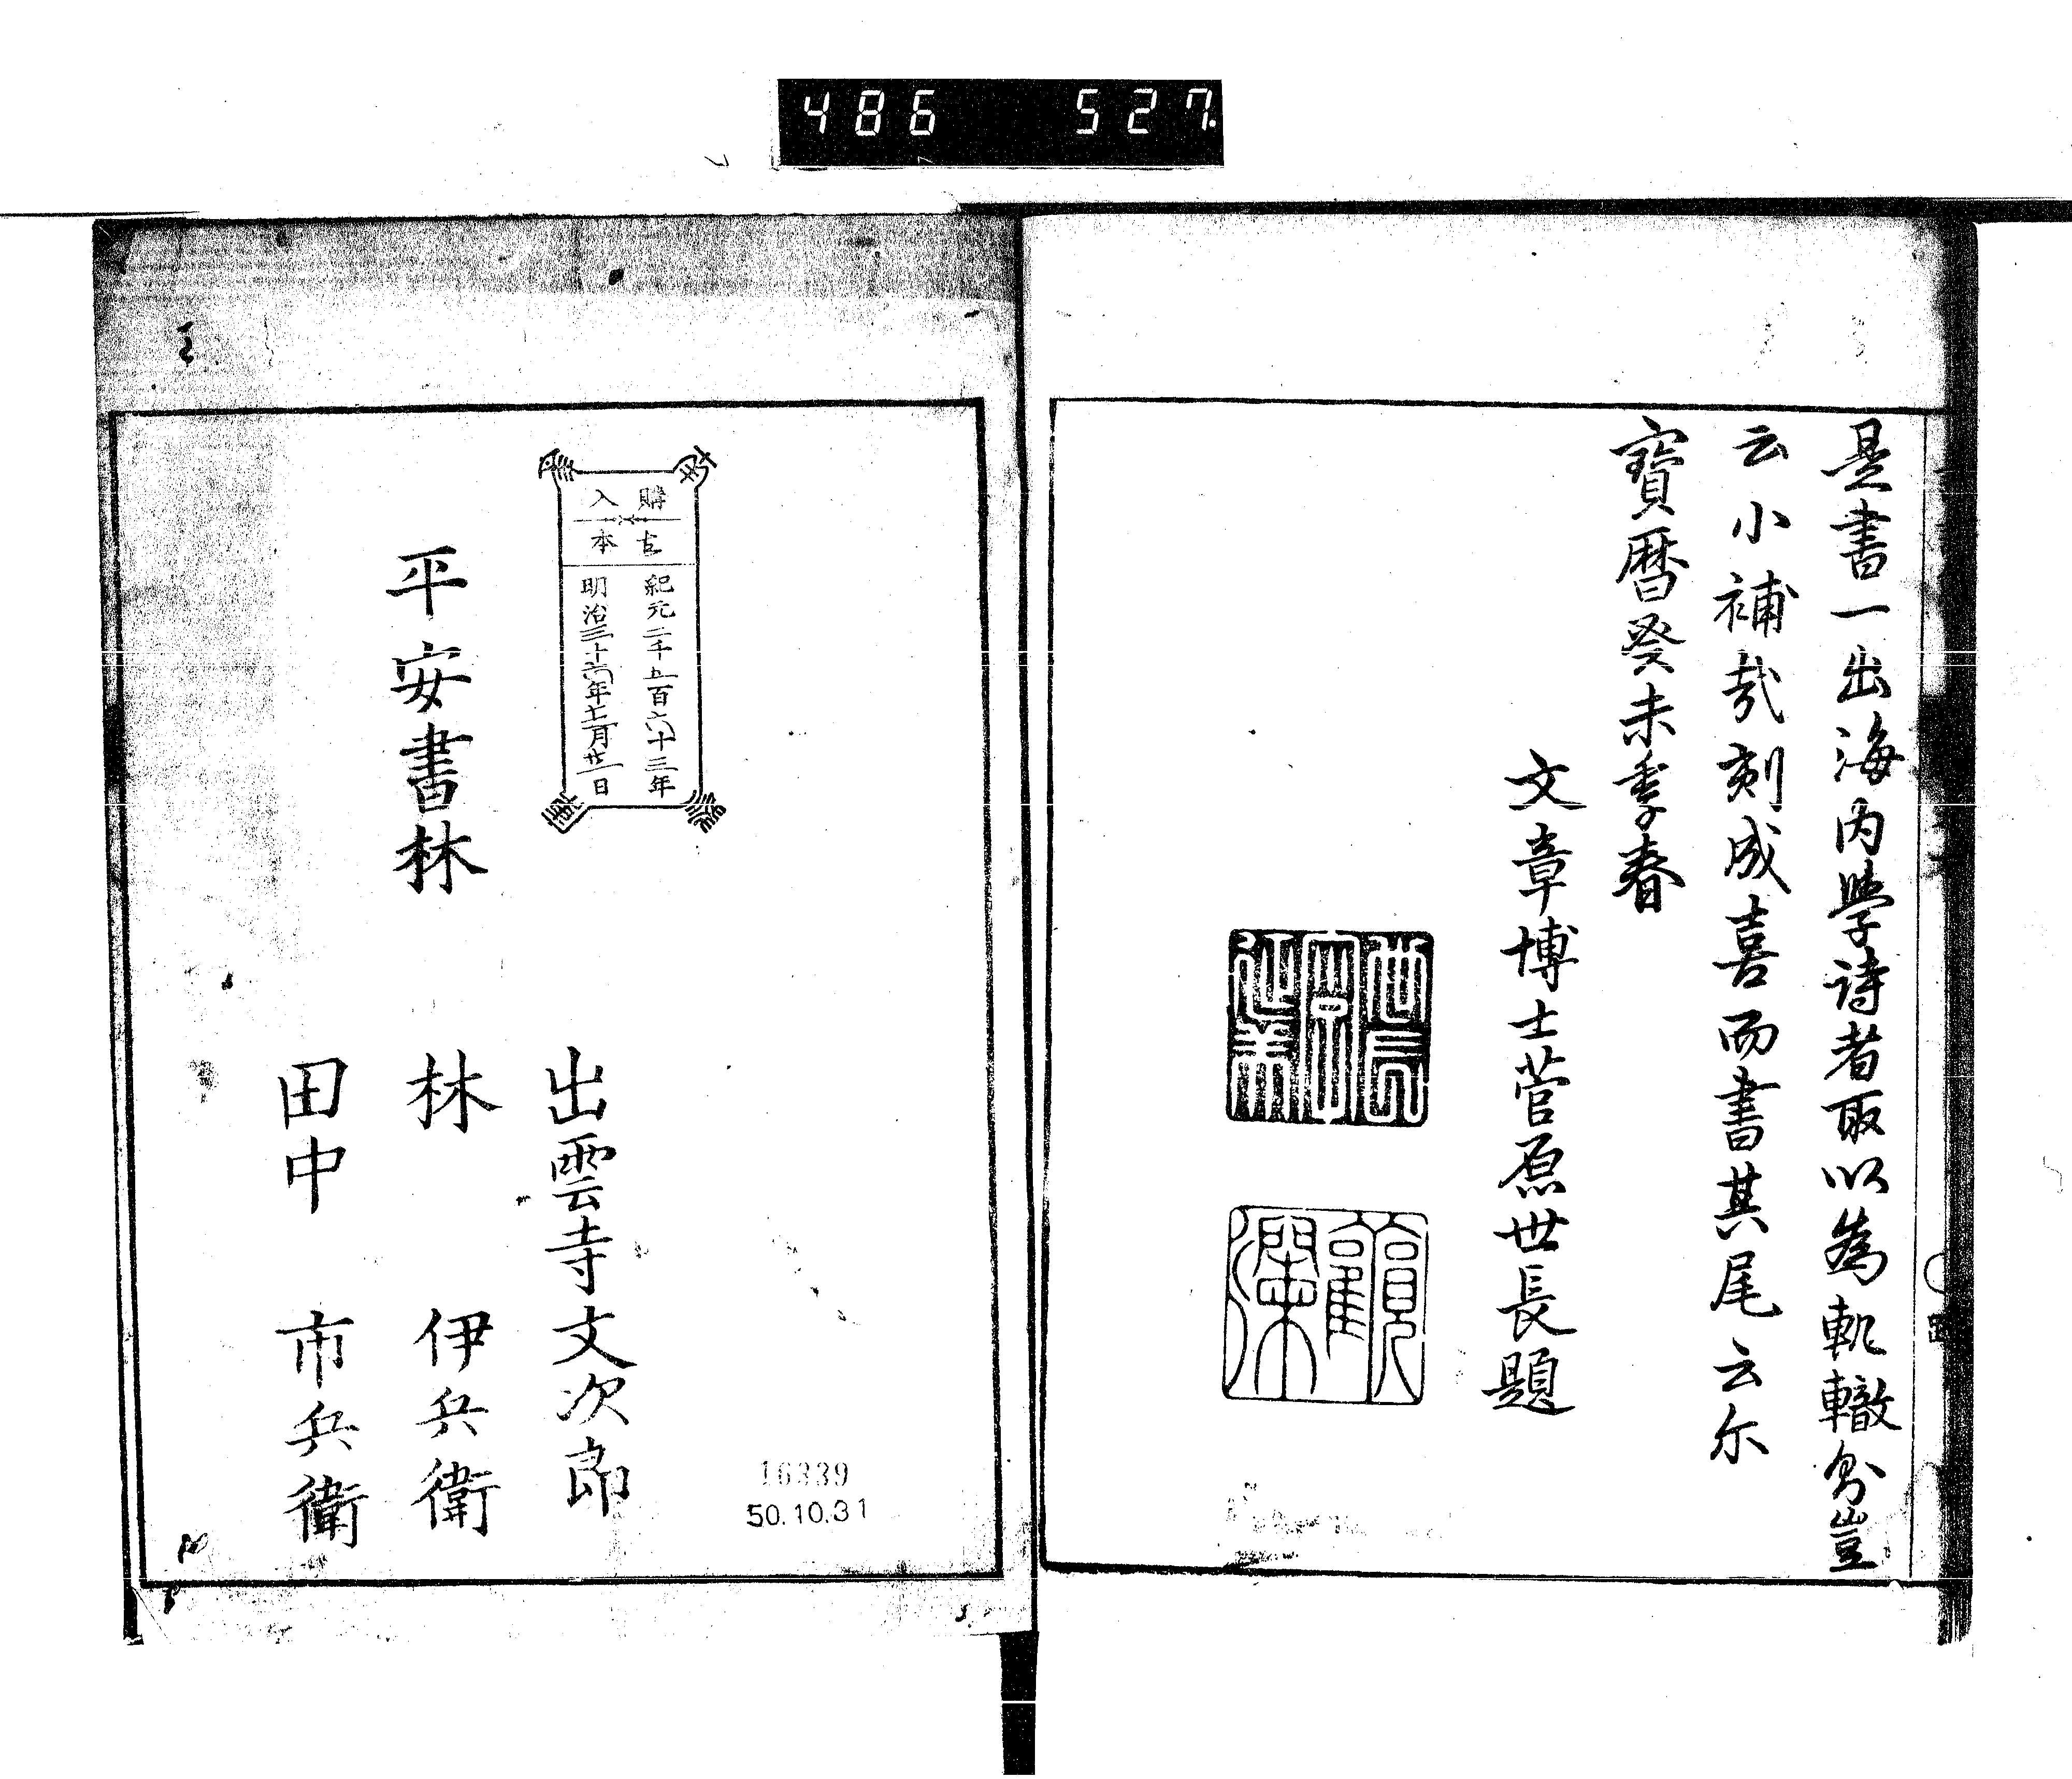 486 527.
是書一出海内學詩者取以為軌轍焉豈
云小補哉刻成喜而書其尾云尔
寶暦癸未季春
文章博士菅原世長題
購入
古本
紀元二千五百六十三年
明治三十六年十二月廿一日
平安書林
出雲寺文次郎
林 伊兵衛
田中 市兵衛
16339
50.10.31